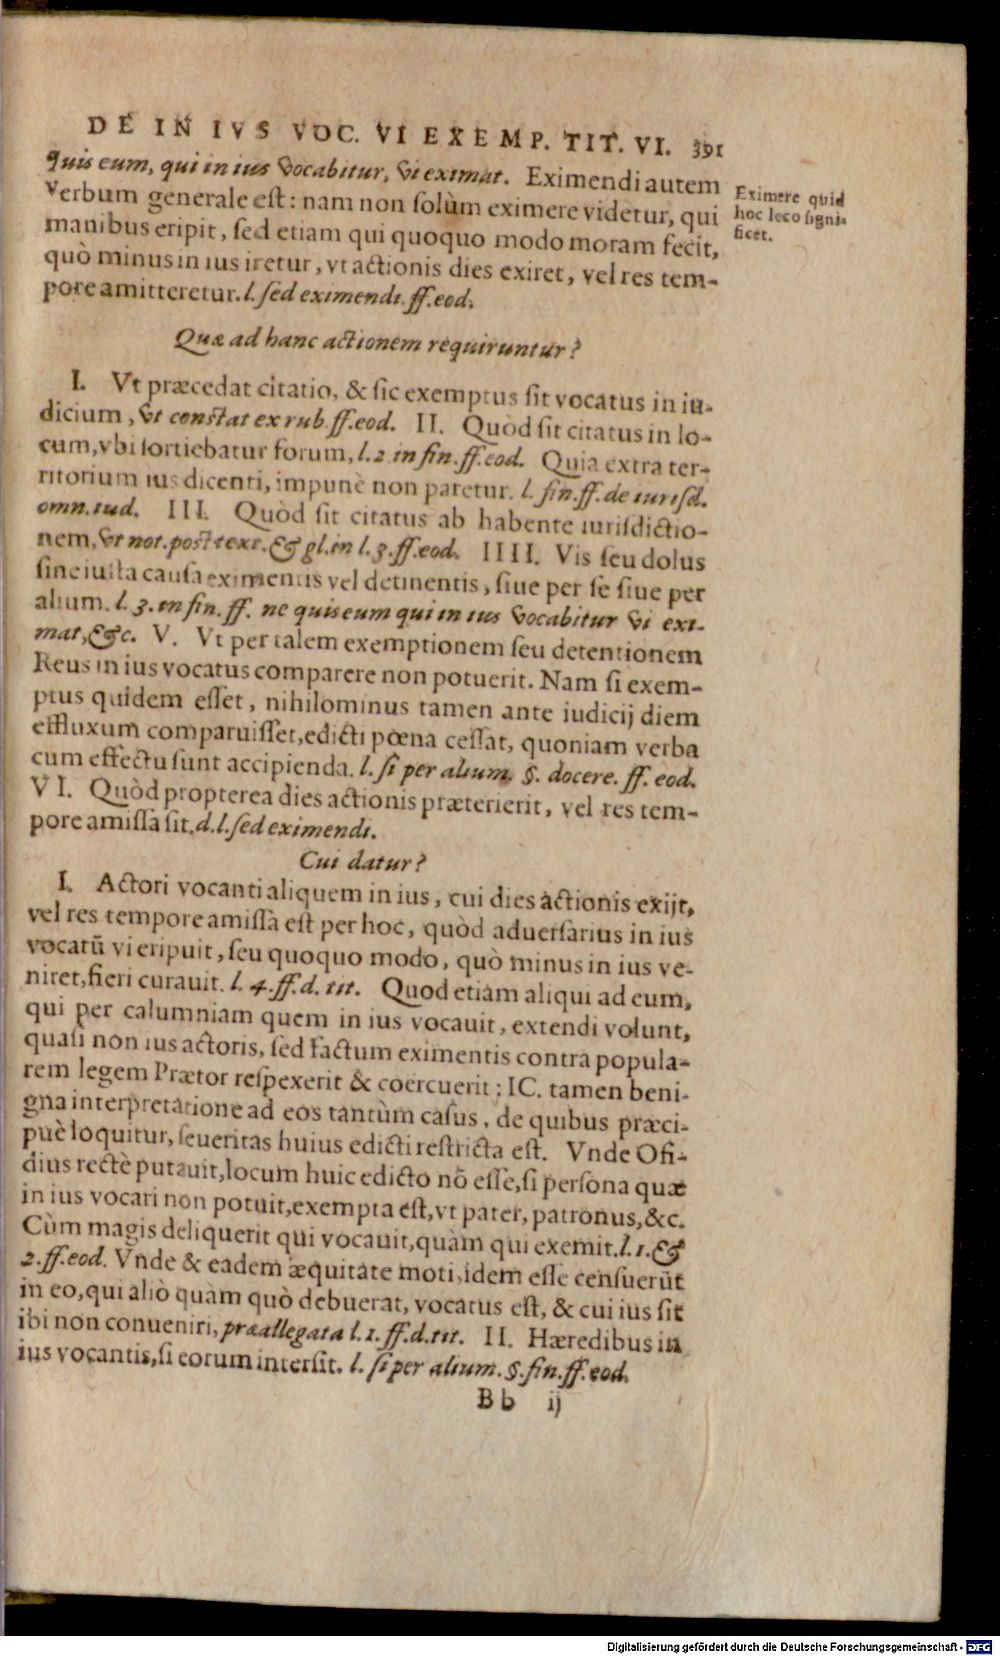 DE IN IVS VOC. VI EXEMP. TIT. VI. 391
quis eum, qui in ius vocabitur, vi eximat. Eximendi autem
verbum generale eſt: nam non ſolùm eximere videtur, qui
manibus eripit, ſed etiam qui quoquo modo moram fecit,
quò minus in ius iretur, vt actionis dies exiret, vel res tem-
pore amitteretur. l. ſed eximendi. ff. eod.
Eximere quid
hoc loco signi-
ficet.
Quæ ad hanc actionem requiruntur?
I. Vt præcedat citatio, & ſic exemptus ſit vocatus in iu-
dicium, vt conſtat ex rub. ff. eod. II. Quòd ſit citatus in lo-
cum, vbi ſortiebatur forum, l. 2 in fin. ff. eod. Quia extra ter-
ritorium ius dicenti, impunè non paretur. l. fin. ff. de iuriſd.
omn. iud. III. Quòd ſit citatus ab habente iuriſdictio-
nem, vt not. poſt text. & gl. in l. 3. ff. eod. IIII. Vis ſeu dolus
ſine iuſta cauſa eximentis vel detinentis, ſiue per ſe ſiue per
alium. l. 3. in fin. ff. ne quis eum qui in ius vocabitur vi exi-
mat, &c. V. Vt per talem exemptionem ſeu detentionem
Reus in ius vocatus comparere non potuerit. Nam ſi exem-
ptus quidem eſſet, nihilominus tamen ante iudicij diem
effluxum comparuiſſet, edicti pœna ceſſat, quoniam verba
cum effectu ſunt accipienda. l. ſi per alium. §. docere. ff. eod.
VI. Quòd propterea dies actionis præterierit, vel res tem-
pore amiſſa ſit. d. l. ſed eximendi.
Cui datur?
I. Actori vocanti aliquem in ius, cui dies actionis exijt,
vel res tempore amiſſa eſt per hoc, quòd aduerſarius in ius
vocatũ vi eripuit, ſeu quoquo modo, quò minus in ius ve-
niret, fieri curauit. l. 4. ff. d. tit. Quod etiam aliqui ad eum,
qui per calumniam quem in ius vocauit, extendi volunt,
quaſi non ius actoris, ſed factum eximentis contra popula-
rem legem Prætor reſpexerit & coërcuerit: IC. tamen beni-
gna interpretatione ad eos tantùm caſus, de quibus præci-
puè loquitur, ſeueritas huius edicti reſtricta eſt. Vnde Ofi-
dius rectè putauit, locum huic edicto nõ eſſe, ſi perſona quæ
in ius vocari non potuit, exempta eſt, vt pater, patronus, &c.
Cùm magis deliquerit qui vocauit, quàm qui exemit. l. 1. &
2. ff. eod. Vnde & eadem æquitate moti, idem eſſe cenſuerũt
in eo, qui aliò quàm quò debuerat, vocatus eſt, & cui ius ſit
ibi non conueniri, præallegata l. 1. ff. d. tit. II. Hæredibus in
ius vocantis, ſi eorum interſit. l. ſi per alium. §. fin. ff. eod.
Bb ij
Digitalisierung gefördert durch die Deutsche Forschungsgemeinschaft - DFG